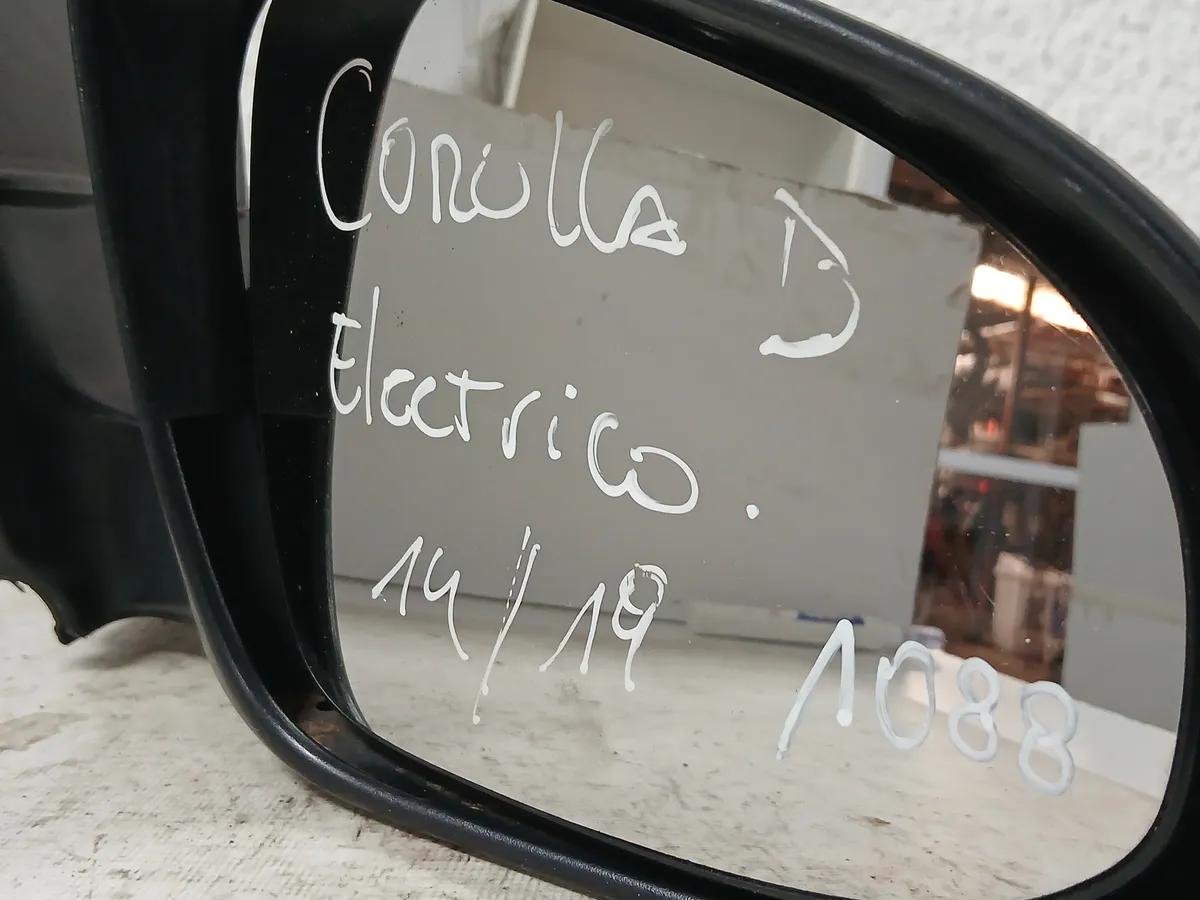 Corolla D
Electrico.
14/19
1088